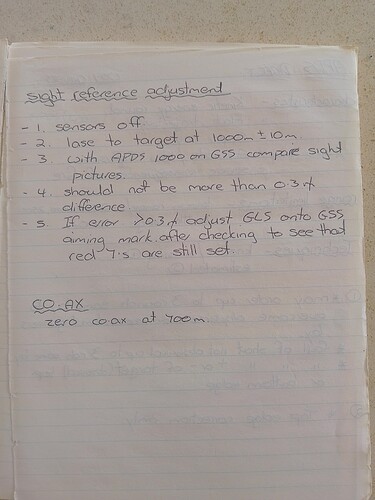 sight reference adjustment
- 1. sensors off
- 2. lase to target at 1000m ± 10m.
- 3. with APDS 1000 on GSS compare sight
pictures.
- 4. should not be more than 0.3 ɱ
difference
- 5. If error >0.3 ɱ adjust GLS onto GSS
aiming mark after checking to see that
red 7's are still set.
CO-AX
zero co-ax at 700m.